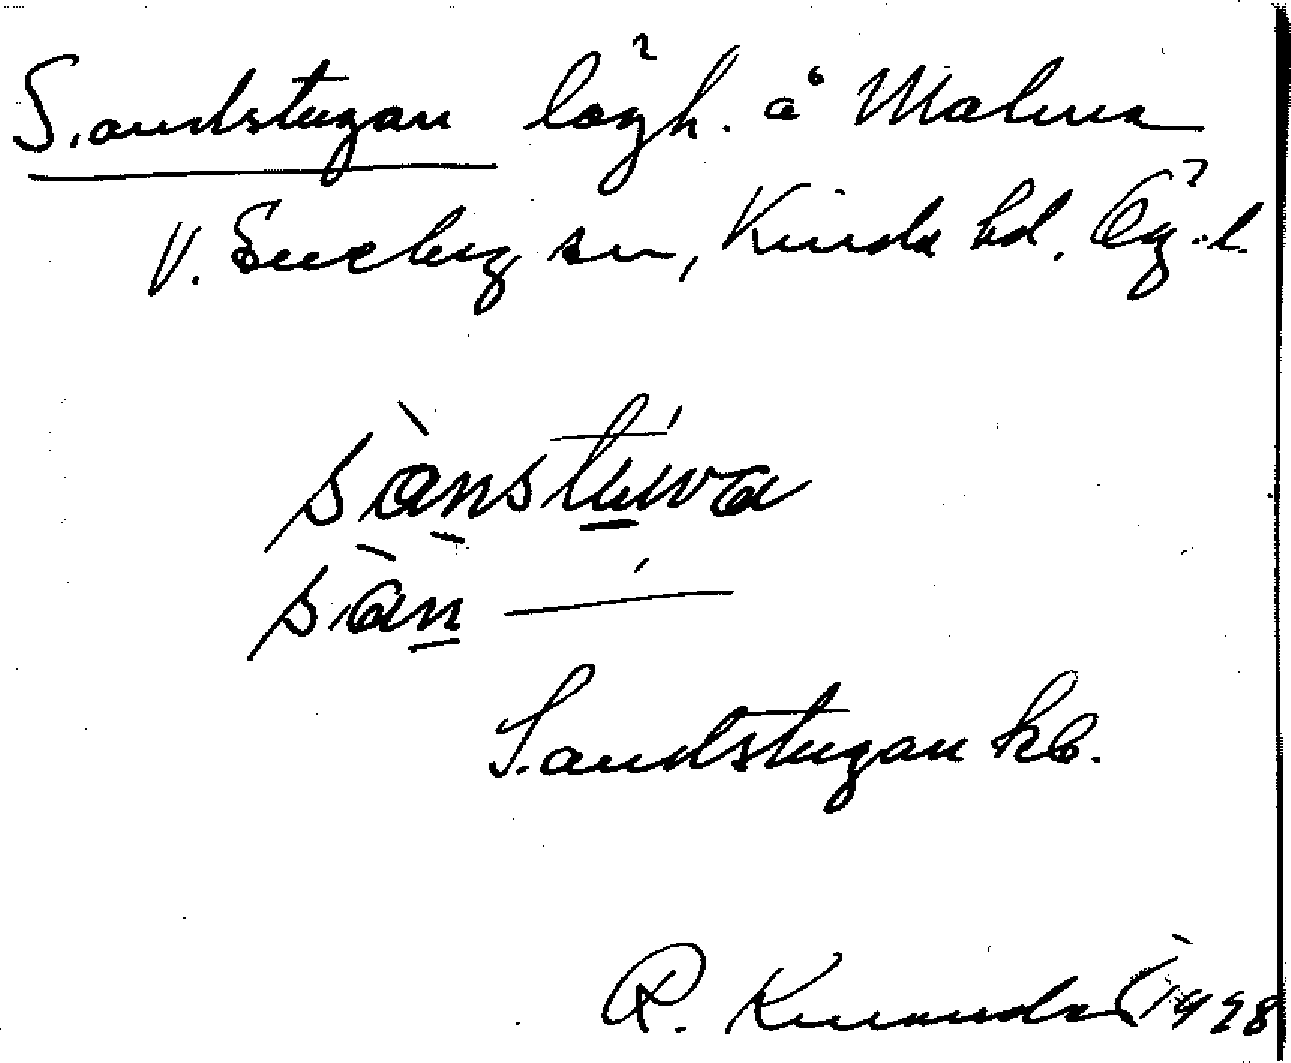 Sandstugan lägh. å Malma
V. Eneby sn, Kinda hd. Ög. l.
sànstúwa
sàn ——
Sandstugan kb.
R. 1928